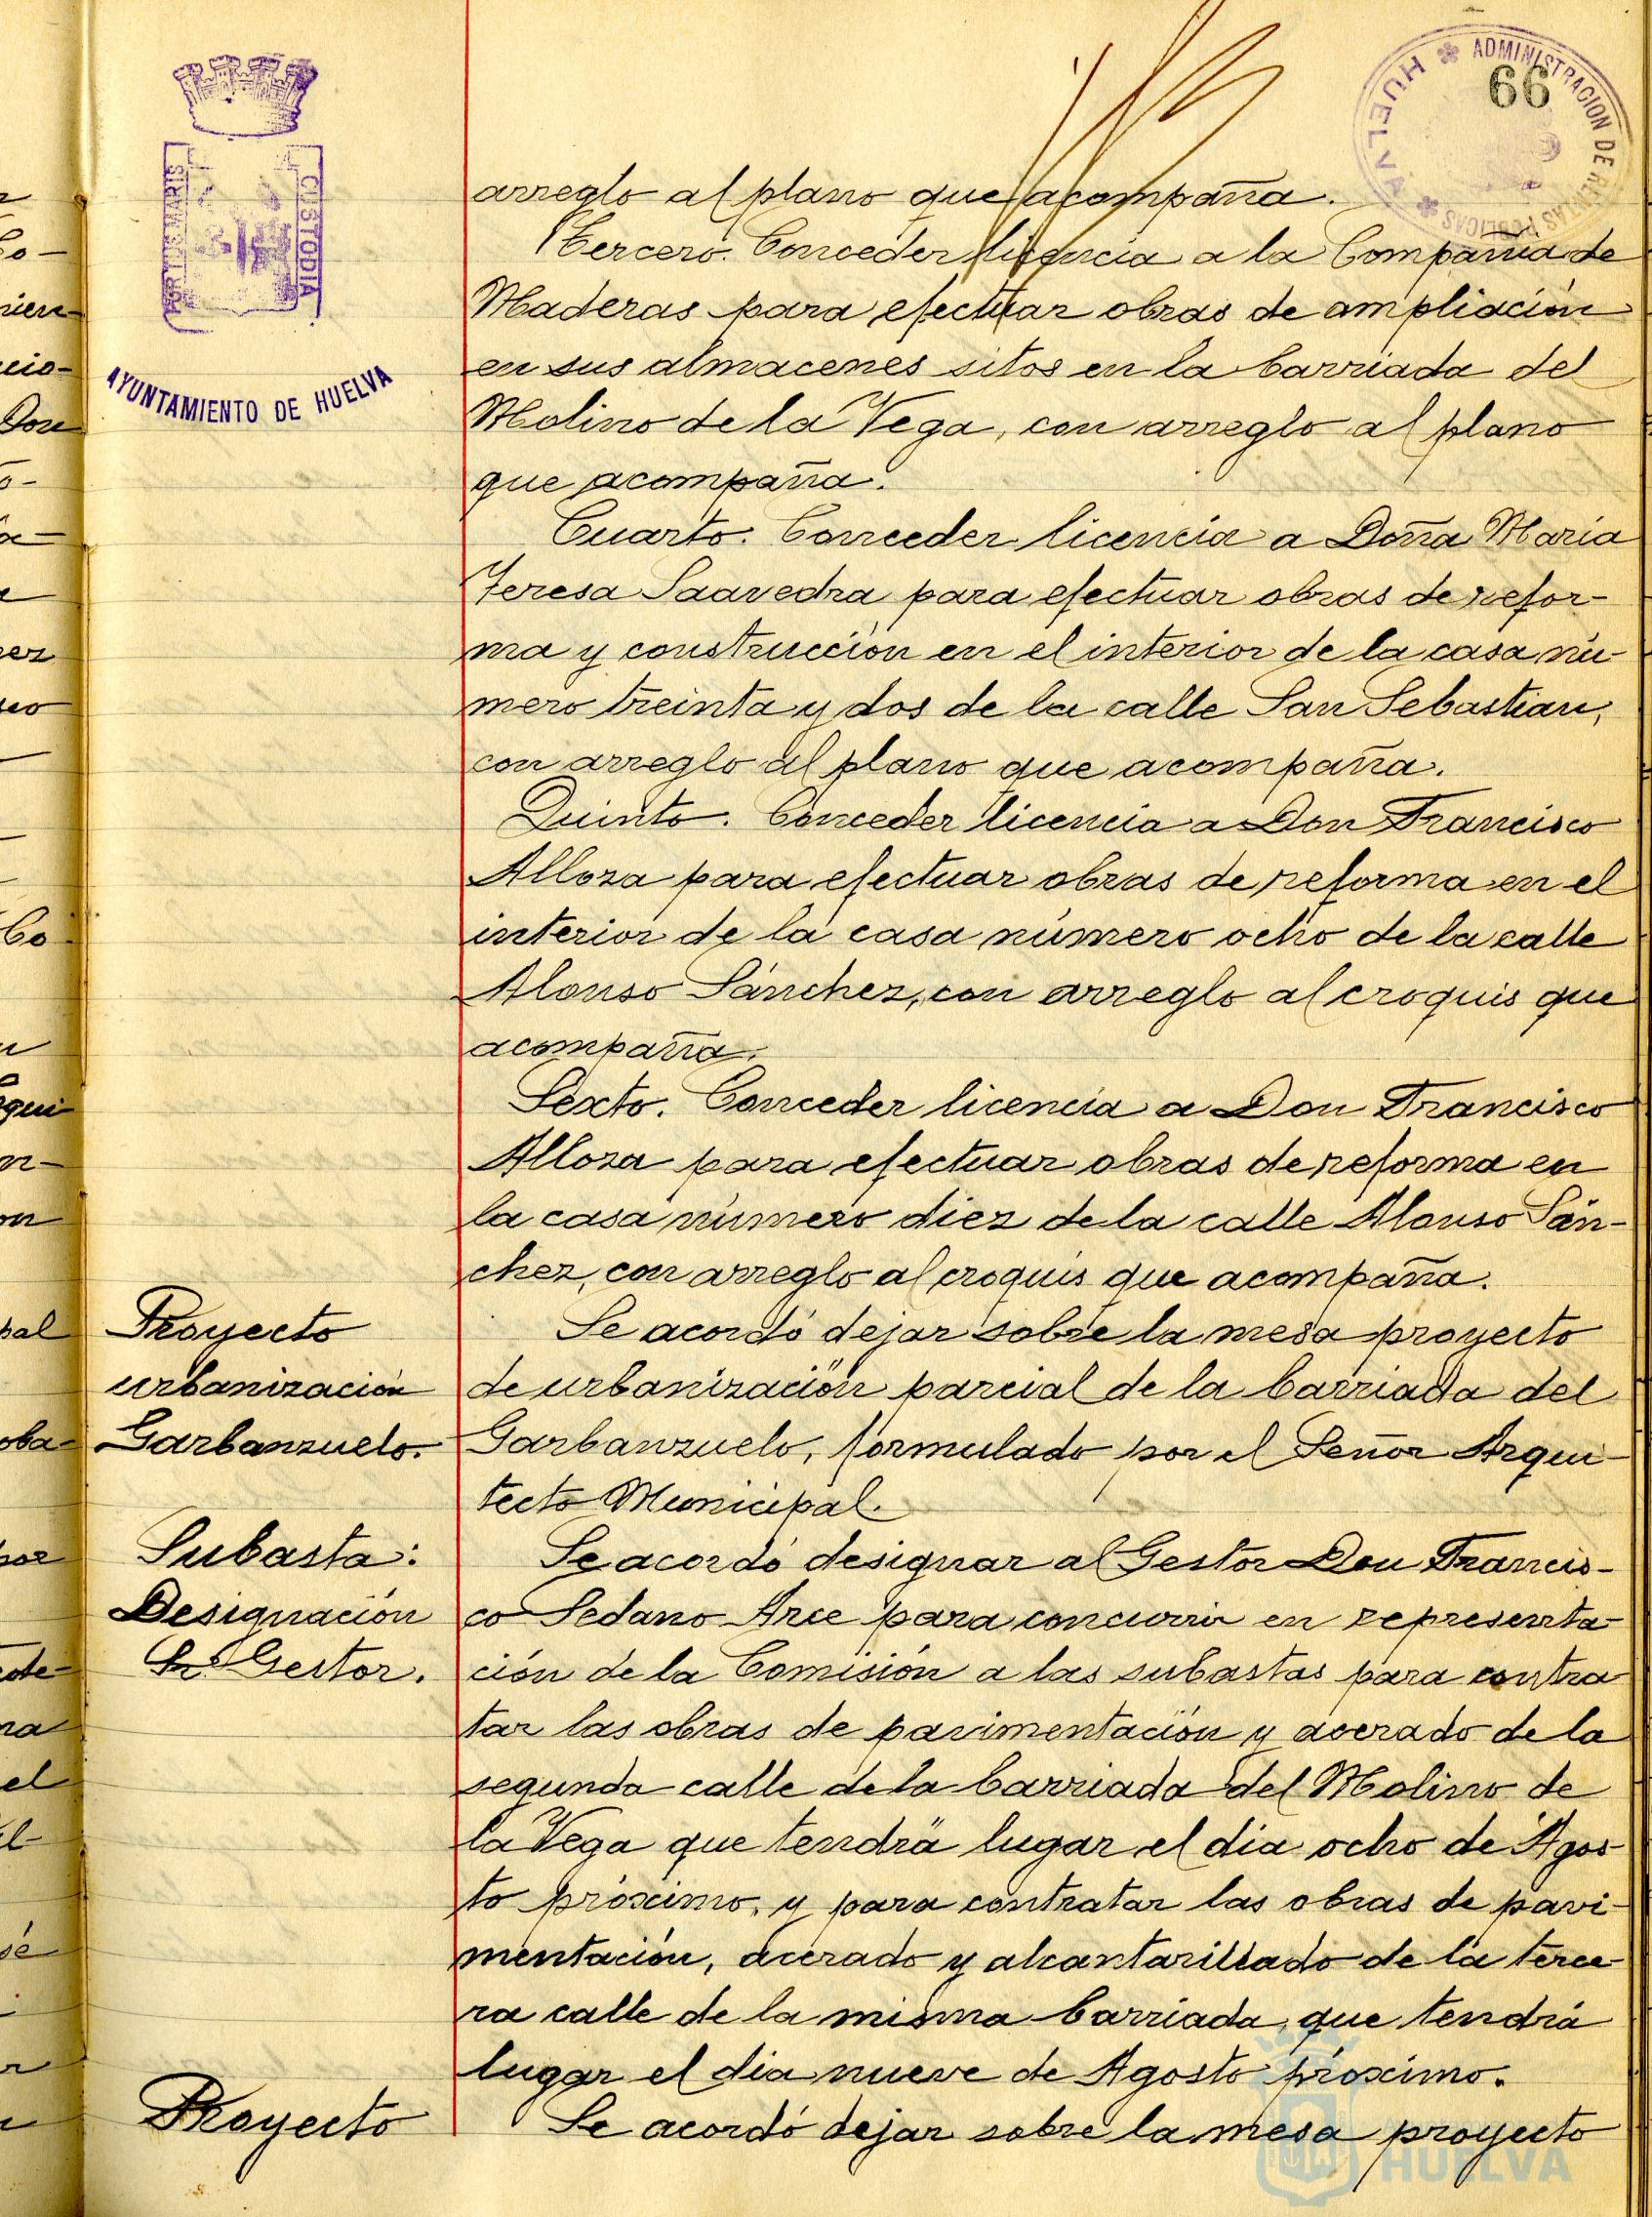 ADMINISTRACION DE RENTAS PUBLICAS
HUELVA
66
PORTUS MARIS
CUSTODIA
AYUNTAMIENTO DE HUELVA
arreglo al plano que acompaña.
Tercero. Conceder licencia a la Compañia de
Maderas para efectuar obras de ampliación
en sus almacenes sitos en la barriada del
Molino de la Vega, con arreglo al plano
que acompaña.
Cuarto. Conceder licencia a Doña Maria
Teresa Saavedra para efectuar obras de refor-
ma y construcción en el interior de la casa nú-
mero treinta y dos de la calle San Sebastian,
con arreglo al plano que acompaña.
Quinto. Conceder licencia a Don Francisco
Alloza para efectuar obras de reforma en el
interior de la casa número ocho de la calle
Alonso Sánchez, con arreglo al croquis que
acompaña.
Sexto. Conceder licencia a Don Francisco
Alloza para efectuar obras de reforma en
la casa número diez de la calle Alonso Sán-
chez, con arreglo al croquis que acompaña.
Proyecto
urbanización
Garbanzuelo.
Se acordó dejar sobre la mesa proyecto
de urbanización parcial de la barriada del
Garbanzuelo, formulado por el Señor Arqui-
tecto Municipal.
Subasta:
Designación
Gestor.
Se acordó designar al Gestor Don Francis-
co Sedano Arce para concurrir en representa-
ción de la Comisión a las subastas para contra-
tar las obras de pavimentación y acerado de la
segunda calle de la barriada del Molino de
la Vega que tendrá lugar el dia ocho de Agos-
to próximo, y para contratar las obras de pavi-
mentación, acerado y alcantarillado de la terce-
ra calle de la misma barriada, que tendrá
lugar el dia nueve de Agosto próximo.
Proyecto
Se acordó dejar sobre la mesa proyecto
HUELVA